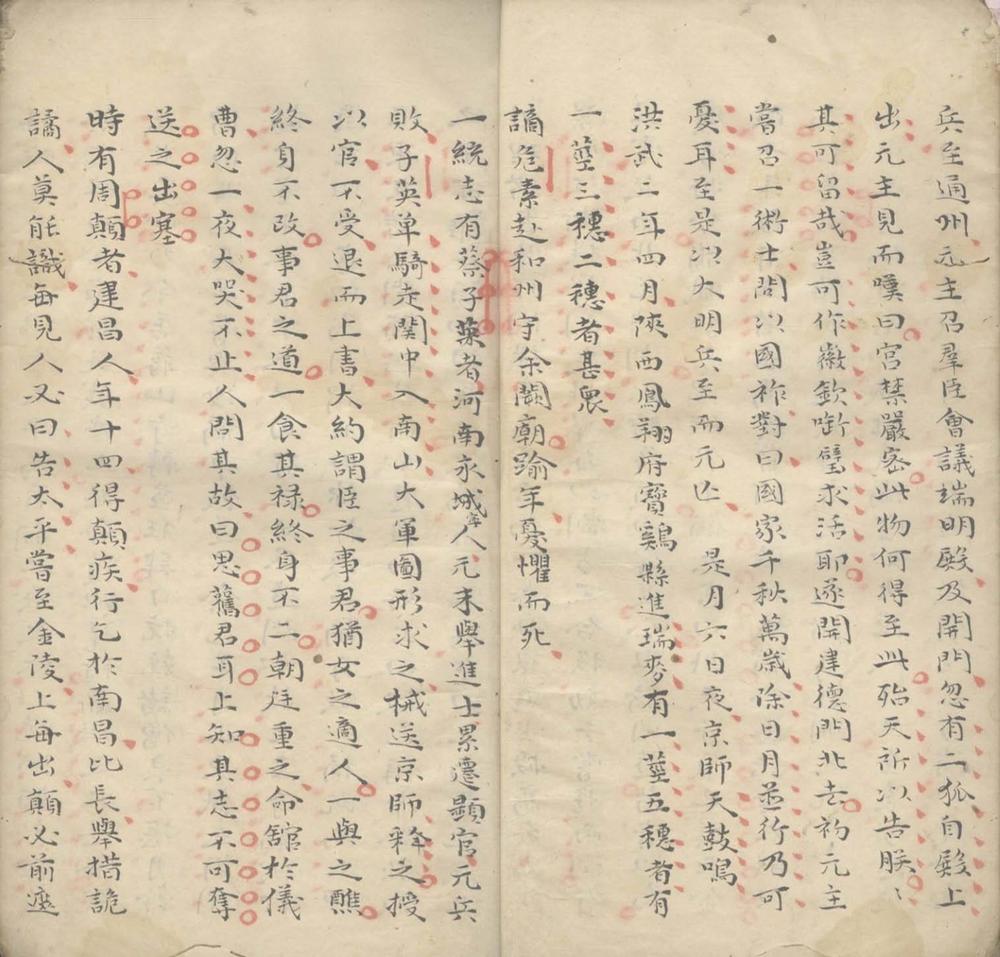 兵至通州元主召羣臣會議端明殿及開門忽有二狐自殿上
出元主見而嘆曰宮禁嚴密此物何得至此殆天所以告朕〻
其可留哉豈可作徽欽啣璧求活耶遂開建德門北去初元主
嘗召一術士問以國祚對曰國家千秋萬歲除日月並行乃可
憂耳至是以大明兵至而元亡　是月六日夜京師天鼓鳴
洪武二年四月陝西鳳翔府寶鷄縣進瑞麥有一莖五穗者有
一莖三穗二穗者甚衆
謫危素赴和州守余闕廟踰年憂懼而死
一統志有蔡子英者河南永城人元末舉進士累遷顯官元兵
敗子英单騎走関中入南山大軍圖形求之械送京師釋之授
以官不受退而上書大約謂臣之事君猶女之適人一與之醮
終身不改事君之道一食其禄終身不二朝廷重之命舘於儀
曹忽一夜大哭不止人問其故曰思舊君耳上知其志不可奪
送之出塞
時有周顛者建昌人年十四得顛疾行乞於南昌比長舉措詭
譎人莫能識每見人必曰告太平嘗至金陵上每出顛必前遮